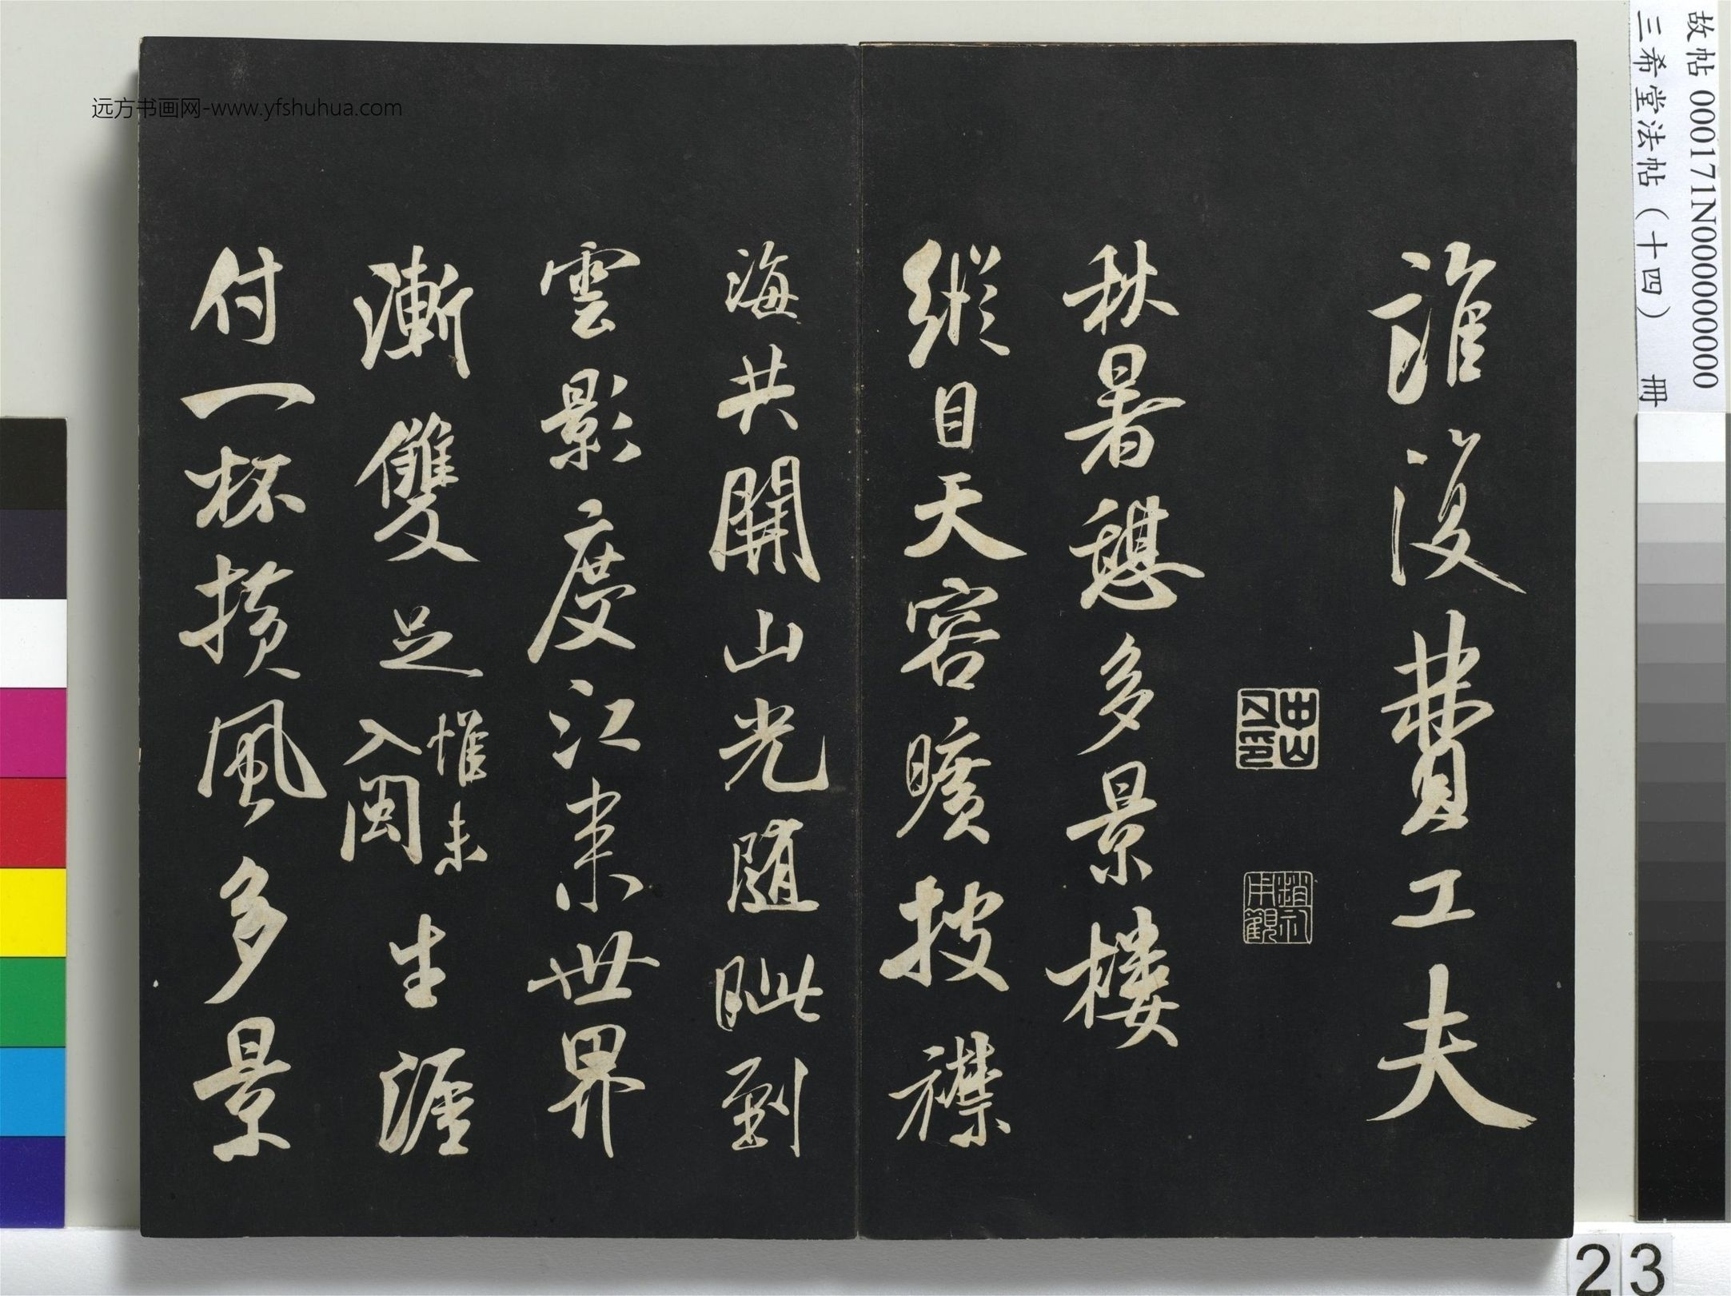 故帖 000171N000000000
三希堂法帖（十四） 冊
远方书画网-www.yfshuhua.com
誰復費工夫
秋暑憩多景楼
縱目天容曠披襟
海共開山光随眦到
雲影度江来世界
漸雙足惟未入閩生涯
付一杯横風多景
23